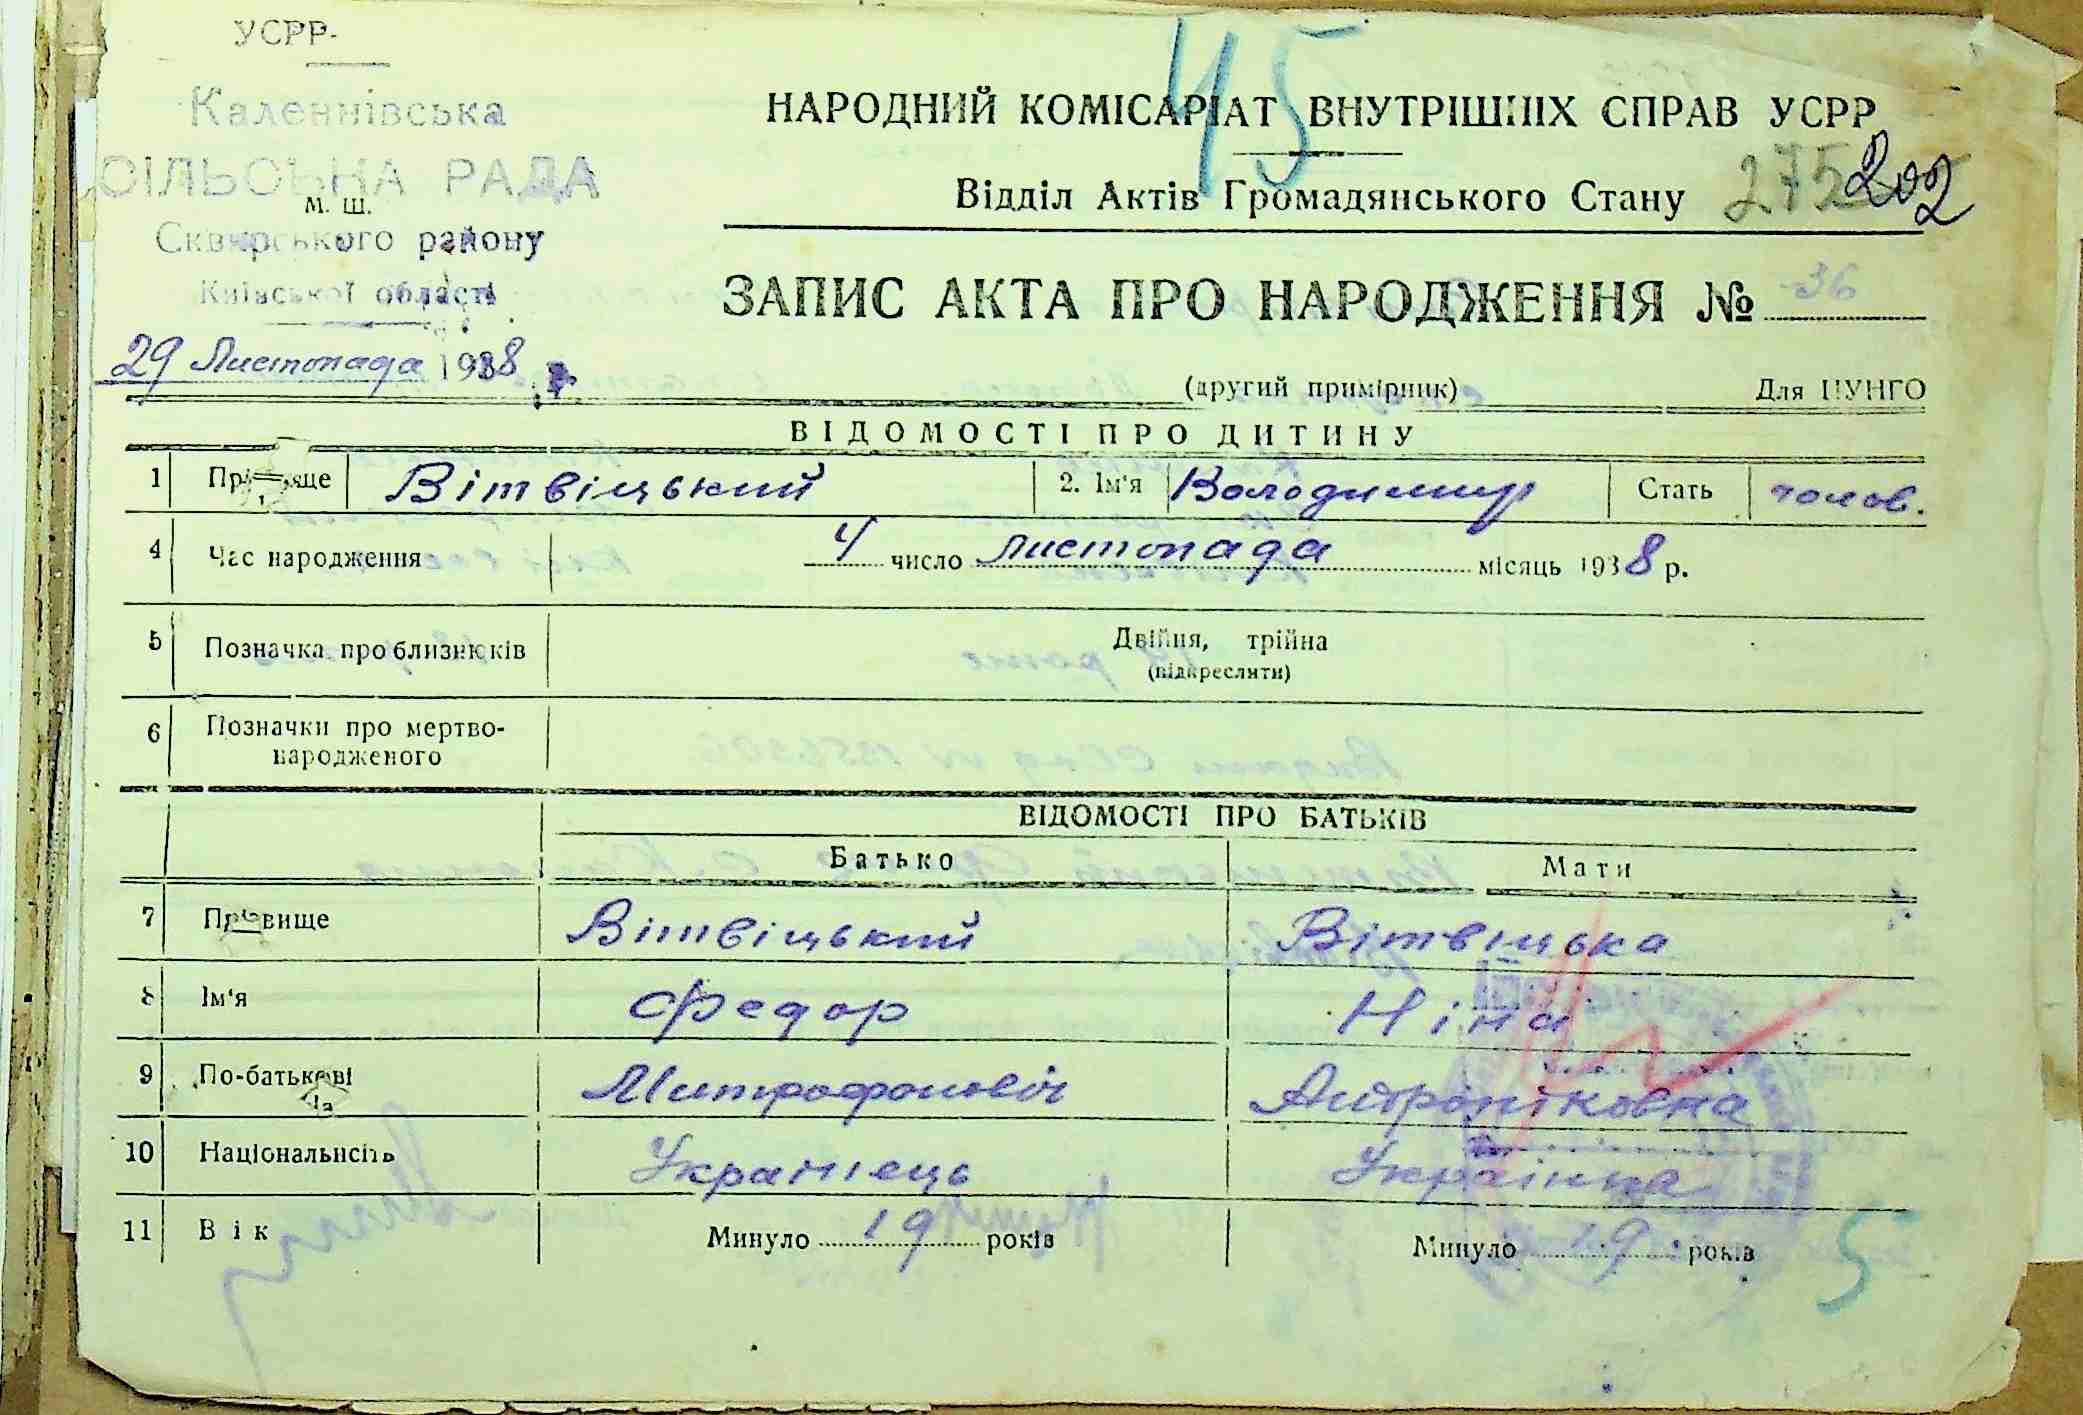 УСРР
Каленнівська
СІЛЬСЬКА РАДА
м. ш.
Сквирського району
Київської області
29 Листопада 1938 р.
45
НАРОДНИЙ КОМІСАРІАТ ВНУТРІШНІХ СПРАВ УСРР
Відділ Актів Громадянського Стану 275 202
ЗАПИС АКТА ПРО НАРОДЖЕННЯ № 36
(другий примірник) Для ЦУНГО
ВІДОМОСТІ ПРО ДИТИНУ
1 Прізвище Вітвіцький 2. Ім'я Володимир Стать чолов.
4 Час народження 4 число листопада місяць 1938 р.
5 Позначка про близнюків Двійня, трійня
(підкреслити)
6 Позначки про мертво-
народженого
ВІДОМОСТІ ПРО БАТЬКІВ
Батько Мати
7 Прізвище Вітвіцький Вітвіцька
8 Ім'я Федор Ніна
9 По-батькові Митрофонович
10 Національність Українець Українка
11 Вік Минуло 19 років Минуло 19 років
5